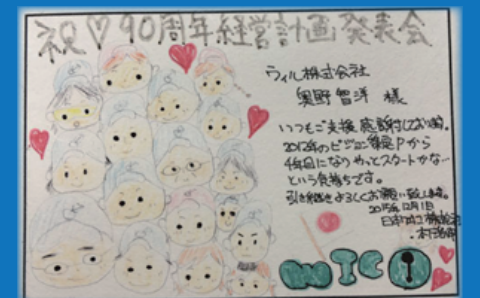 祝♡90周年経営計画発表会
ウィル株式会社
奥野智洋 様
いつもご支援感謝しております。
2012年のビジョン Pから
4年目になりやっとスタートかな…
という気持ちです。
引き続きよろしくお願い致します。
2015年12月1日
日本 株式会社
木下